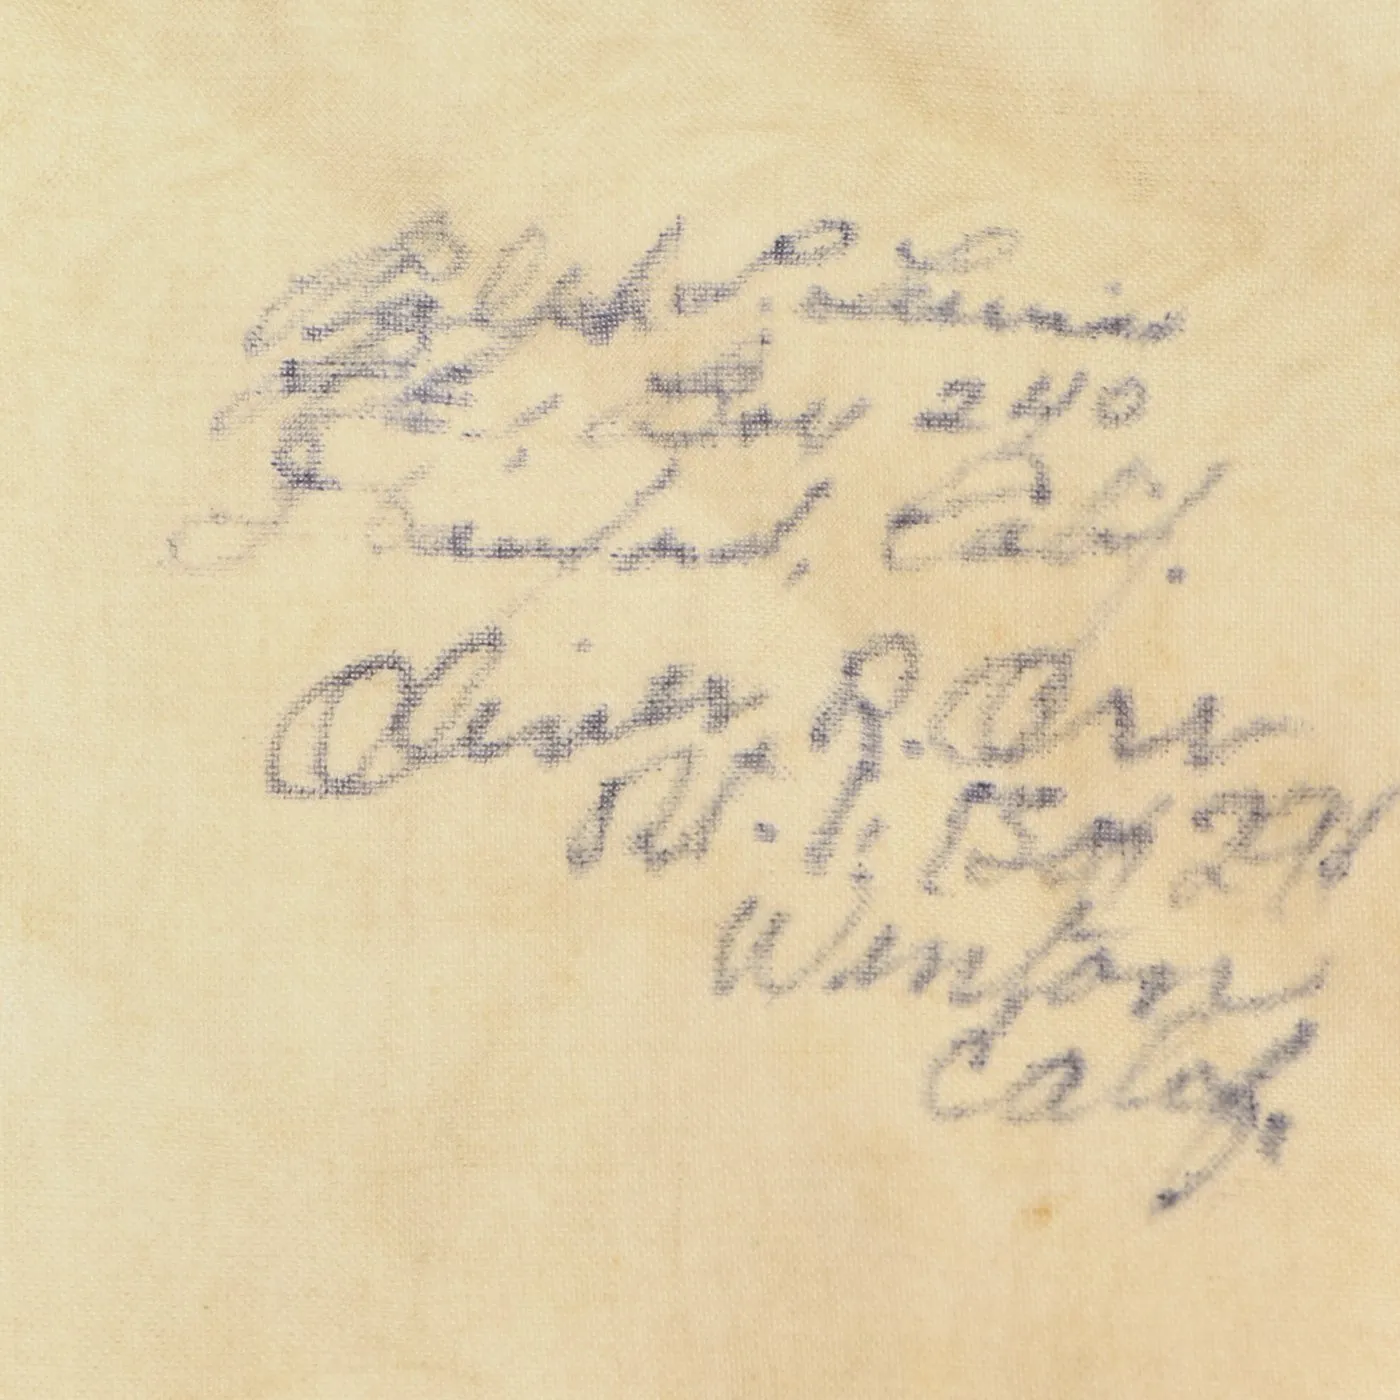 P. Lewis
Box 240
Calif.
Oliver R. Orr
Rt. 1, Box 271
Winton
Calif.